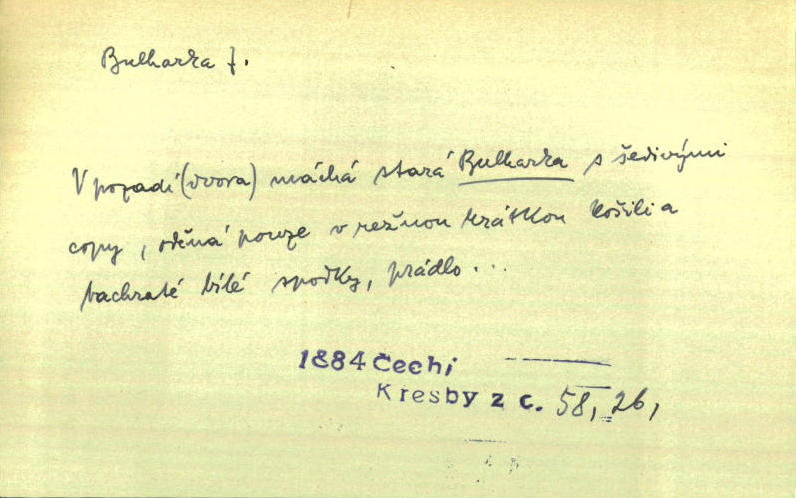 Bulharka f.
V pozadí (dvora) máchá stará Bulharka s šedivými
copy, oděná pouze v režnou krátkou košili a
bachraté bílé spodky, prádlo...
1884 Čech i
Kresby z c. 58, 26,